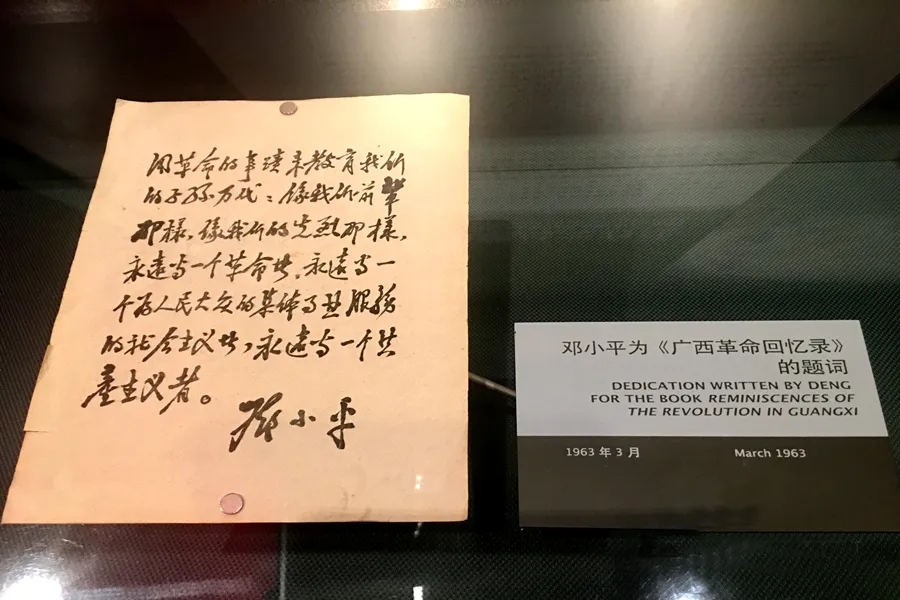 用革命的事蹟来教育我们
的子孙万代：像我们前辈
那様，像我们的先烈那様，
永遠当一个革命者，永遠当一
个为人民大众的集体事业服務
的社会主义者，永遠当一个共
產主义者。
邓小平
邓小平为《广西革命回忆录》
的题词
DEDICATION WRITTEN BY DENG
FOR THE BOOK REMINISCENCES OF
THE REVOLUTION IN GUANGXI
1963 年 3 月 March 1963